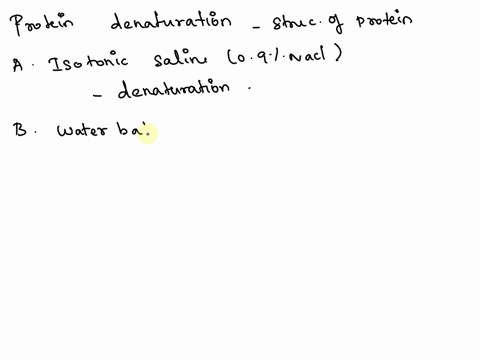 Protein denaturation - struc. of protein
A. Isotonic saline (0.9%. Nacl)
- denaturation.
B. water ba